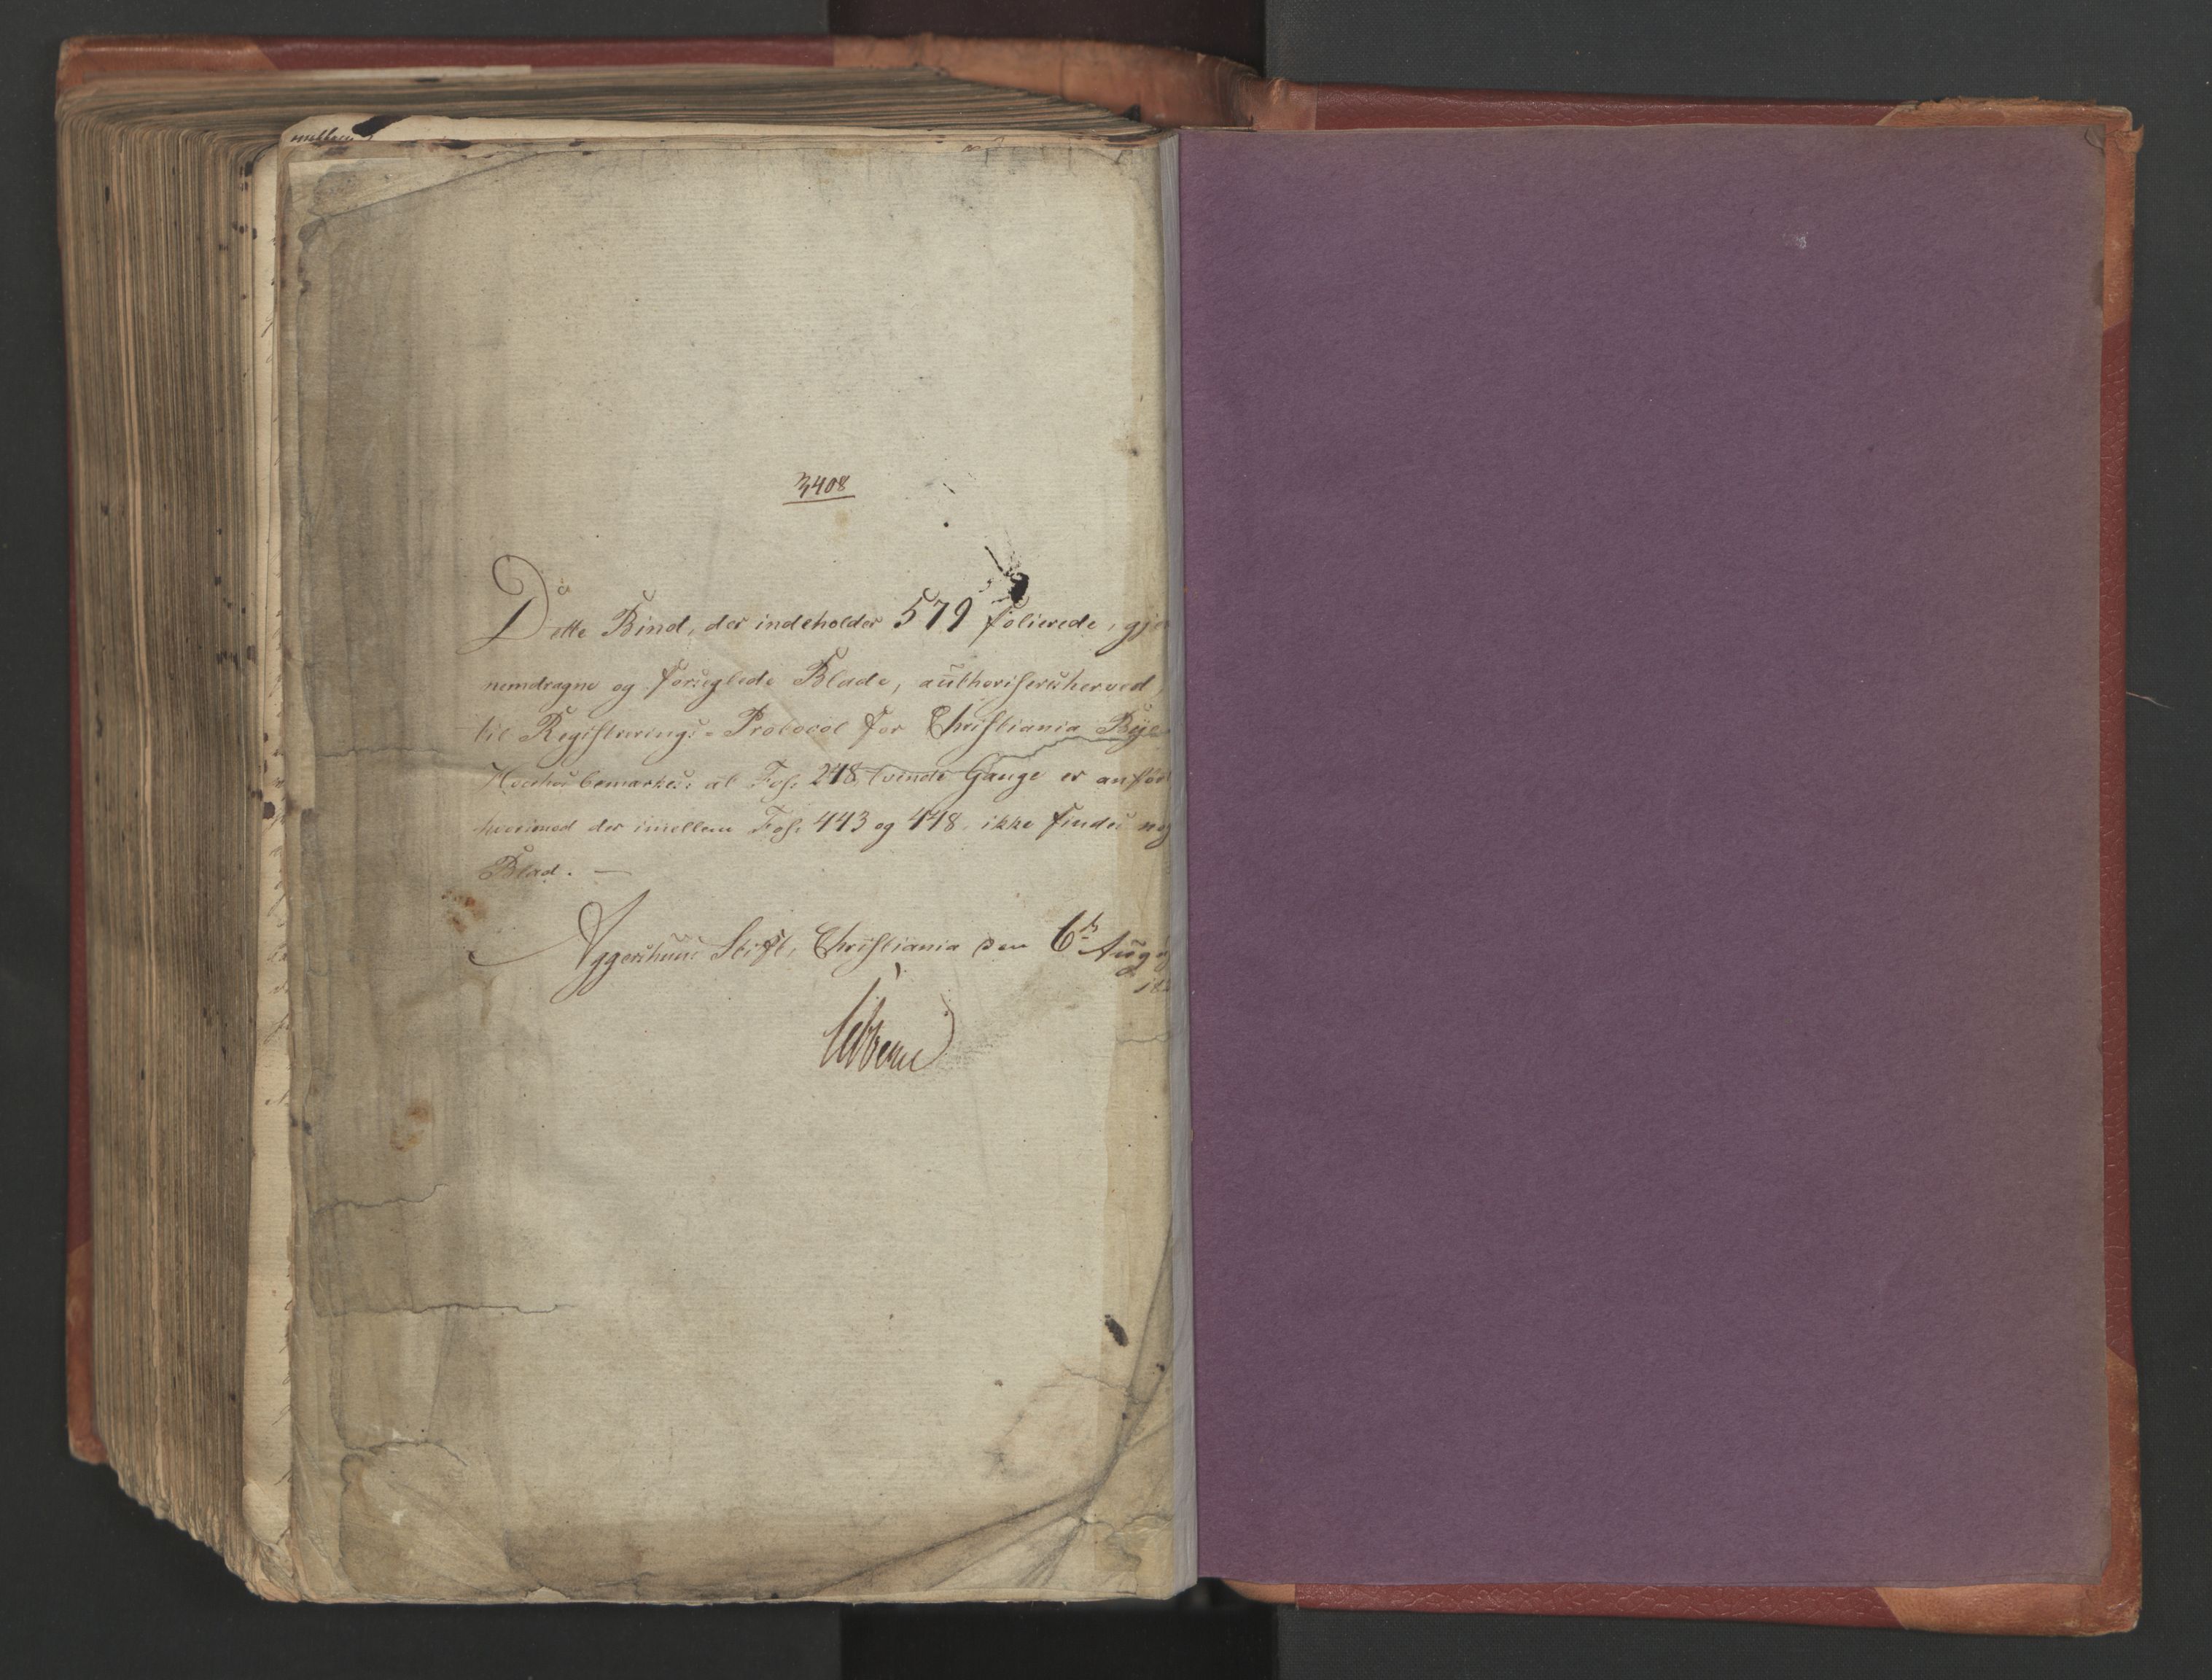 3408
Dette Bind, der indeholder 579 folierede, gje
nemdragne og forseglede Blade, authoriseres herved
til Registrerings-Protocol for Christiania Bye
bemærkes: at Fol. 248 tvende Gange er anfør
hvorimod der imellem Fol. 443 og 448 ikke findes nog
Blad. —
Aggershuus Stift, Christiania den 6te Aug